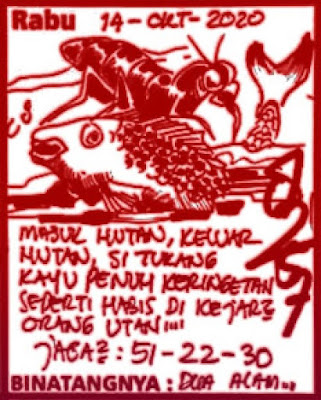 Rabu 14-OKT-2020
MASUK HUTAN, KELUAR
HUTAN, SI TUKANG
KAYU PENUH KERINGETAN
SEPERTI HABIS DI KEJAR2
ORANG UTAN....
JAGA2 : 51-22-30
BINATANGNYA : DUA ALAM...